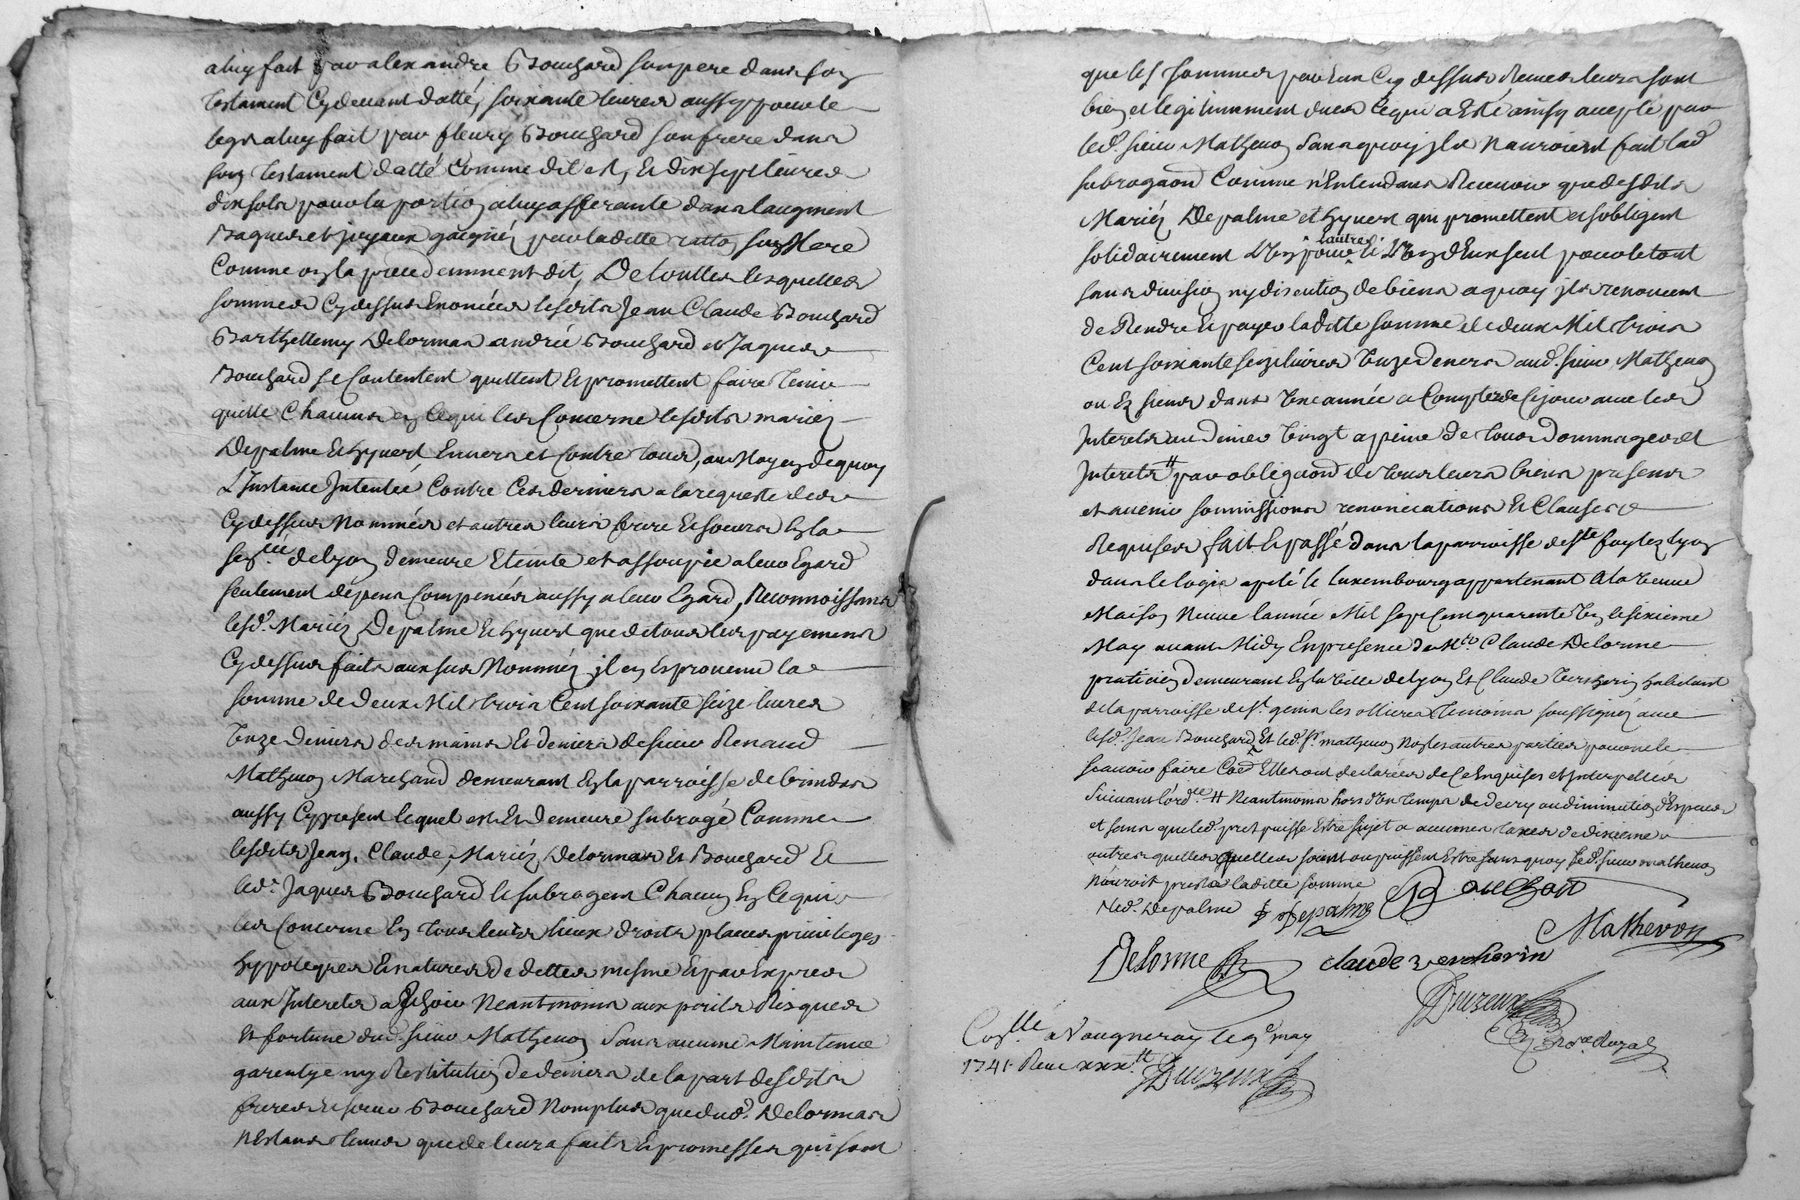 a luy fait par alexandre Bouchard son pere dans son
testament cy devant datté, soixante livres aussy pour le
legs a luy fait par fleury Bouchard son frere dans
son testament datté comme dit est, et dix sept livres
dix sols pour la portion a luy afferante dans l'augment
Bagues et joyaux gaignéz par laditte ratton sa Mere
Comme on l'a precedemment dit, De touttes lesquelles
sommes cy dessus Enoncées lesdits Jean Claude Bouchard
Barthellemy Delormas andrée Bouchard et Jaques
Bouchard se Contentent quittent et promettent faire tenir
quitte Chacuns en ce qui les Concerne lesdits mariéz
Depalme et hyvert Envers et Contre tous, au Moyen de quoy
L'Instance Intentée Contre Ces derniers a la requeste des
cy dessus Nomméz et autres leurs frere et soeurs en la
sen.ée de lyon demeure Eteinte et assoupie a leur Egard
seulement depens Compensés aussy a leur Egard, Reconnoissans
lesd. Mariéz Depalme et hyvert que de tous les payemens
cy dessus faits aux sus Nomméz il en Est provenu la
somme de deux Mil trois Cent soixante seize livres
Unze deniers des mains et deniers de sieur Renaud
Mathevon Marchand demeurant en la parroisse de brindas
aussy cy present lequel est et demeure subrogé Comme
lesdits Jean, Claude, Mariéz Delormas et Bouchard et
led. Jaques Bouchard le subrogent Chacun En ce qui
les Concerne En tous leurs lieux droits places privileges
hypoteques et natures de dettes mesme et par Exprès
aux Interets a Echoir Neantmoins aux perils Risques
et fortune dud. sieur Mathevon Sans aucune Maintenue
garentye ny Restitution de deniers de la part desdits
freres et soeur Bouchard Nomplus que dud. Delormas
N'Estans tenus que de leurs faits et promesses qui sont
que les sommes par Eux cy dessus Receues leurs sont
bien et legitimement dues ce qui a Esté ainsy accepté par
led. sieur Mathevon Sans quoy ils N'auroient fait lad
subrogaon Comme n'Entendans Recevoir que desdits
Mariéz Depalme et hyvert qui promettent et s'obligent
solidairement L'un pour l'autre & L'un d'Eux seul pour le tout
sans division ny discution de biens a quoy ils renoncent
de Rendre et payer laditte somme de deux Mil trois
Cent soixante seize livres Unze deniers aud. sieur Mathevon
ou Es siens dans Une année a Compter de Ce jour avec les
Interets au denier Vingt a peine de tous dommages et
Interets # par obligaon de tous leurs biens presens
et avenir soumissions renonciations et Clauses
Requises fait et passé dans la parroisse de ste foy lez lyon
dans le logis apelé le Luxembourg appartenant a la veuve
Maison Neuve l'année Mil sept Cent quarente Un le sixieme
May avant Midy En presence de M.e Claude Delorme
praticien demeurant En la Ville de lyon Et Claude Vercherin habitant
de la parroisse de st genis les ollieres temoins soussignéz avec
lesd. Jean Bouchard Et led. sr mathevon Non les autres parties pour ne le
scavoir faire Co.e Elles ont declarées de Ce Enquises et Interpellées
Suivant l'ord.ce # Neantmoins hors d'Un temps de decry ou diminution d'Especes
et sans que led. pret puisse Estre sujet a aucunes taxes de dixieme
autres quelles quelles soient ou puissent Estre sans quoy led. sieur mathevon
N'auroit presté laditte somme
Bouchard
& led. Depalme
Depalme
Mathevon
Delorme
claude vercherin
Duvzeux
Con.lle a Vaugneray le 9e may
1741. Receu xxx.tt